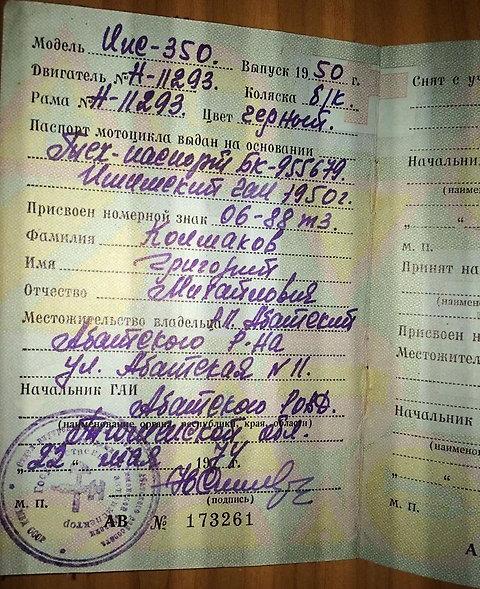 Модель Иж-350. Выпуск 1950 г.
Двигатель № Н-11293. Коляска б/к.
Рама № Н-11293. Цвет черный.
Паспорт мотоцикла выдан на основании
Тех-паспорт БК-955679
Ишимский ГАИ 1950 г.
Присвоен номерной знак 06-88 тэ
Фамилия Колмаков
Имя Григорий
Отчество Михайлович
Местожительство владельца п. Абатский
Абатского р-на
ул. Абатская № 11.
Начальник ГАИ
Абатского РОВД.
(наименование органа, республики, края, области)
Тюменской обл.
„22“ мая 1974 г.
(подпись)
М. П.
АВ № 173261
Снят с
Начальник
(наимено
„ “
М. П.
Принят на
(наимено
Присвоен н
Местожител
Начальник
(наимено
„ “
М. П.
А